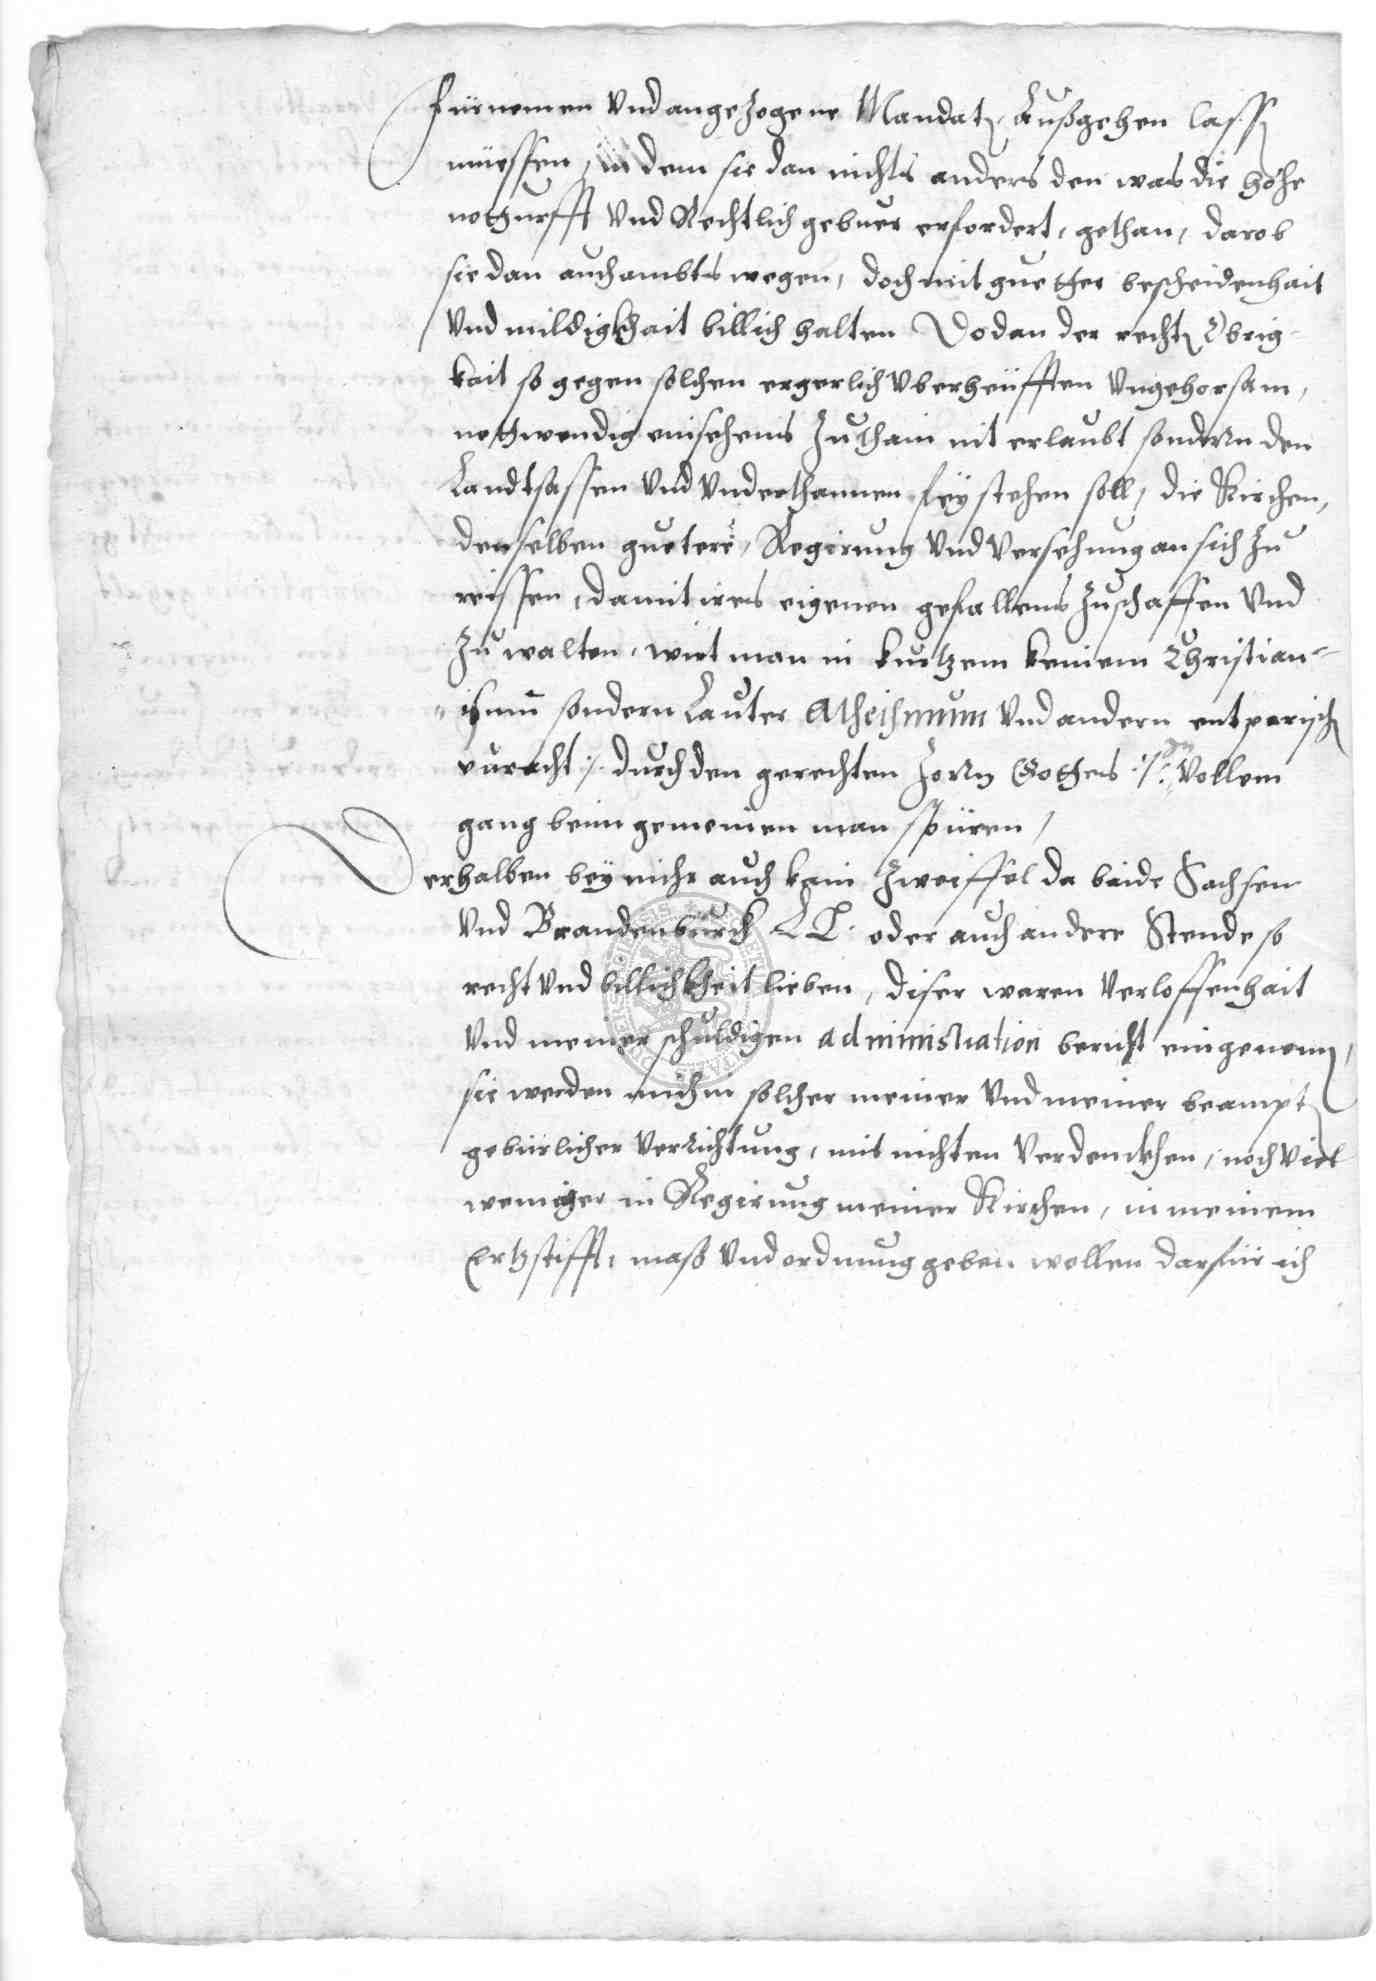 fürnemen vnd angezogene Mandat, Außgehen lassen
müessen, in dem sie dan nichts anders den was die hohe
notturfft vnd Rechtlich gebuer erfordert, gethan, darob
sie dan auch ambts wegen, doch mit guetter bescheidenhait
vnd mildigkhait billich halten Do dan der rechten Obrig-
kait so gegen solchen ergerlich vberheüfften vngehorsam,
nottwendig einsehens zuthain nit erlaubt sondern den
Landtsassen vnd vnderthannen frey stehen soll, die Kirchen,
denselben guetere, Regirung vnd versehung an sich zu
reissen, damit ires eigenen gefallens zuschaffen vnd
zu walten, wirt man in kurtzem keniem Christian-
"ismum sondern Lauter Atheismum vnd andern
vnracht :/: durch den gerechten Zorrn Gottes :/: vollem
gang beim gemeinen man spüren,
Derhalben bey mihr auch kain Zweiffel da baide Sachsen
vnd Brandenburch LL. oder auch andere Stende so
recht vnd billichkheit lieben, diser waren verloffenhait
vnd meiner schuldigen administration bericht eingenomen,
sie werden mich in solcher meiner vnd meiner beampten
gebürlicher verrichtung, mit nichten verdenckhen, noch viel
weniger in Regirung meiner Kirchen, in meinem
Ertzstifft, maß vnd ordnung geben wollen darfür ich